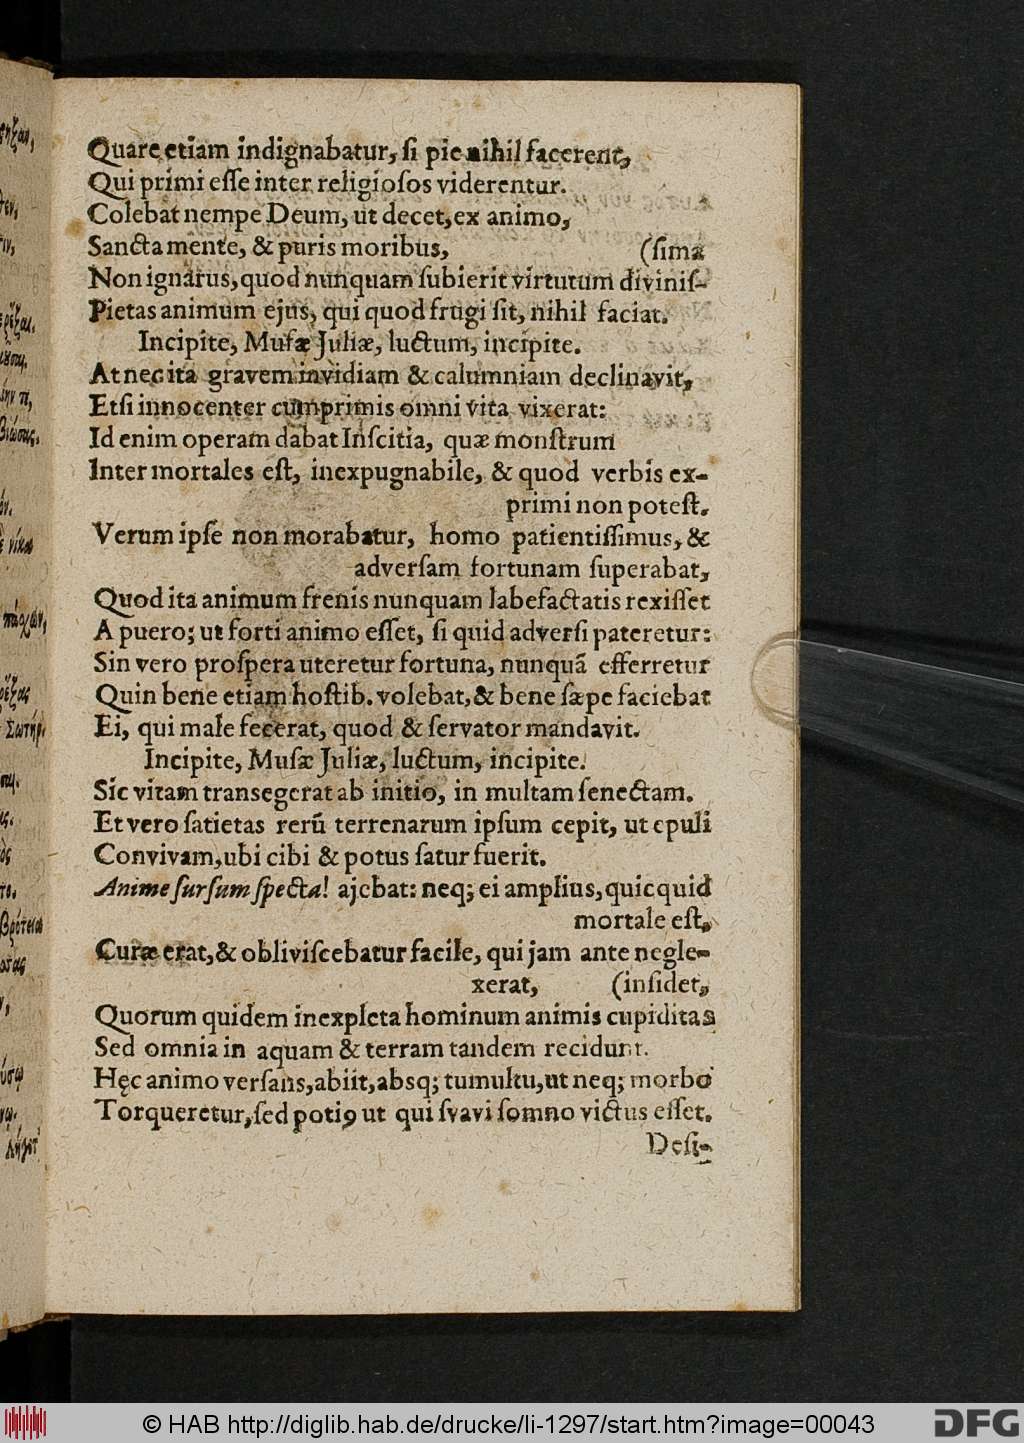 Quare etiam indignabatur, ſi pie nihil facerent,
Qui primi eſſe inter religioſos viderentur.
Colebat nempe Deum, ut decet, ex animo,
Sancta mente, & puris moribus, (ſima
Non ignarus, quod nunquam ſubierit virtutum diviniſ-
Pietas animum ejus, qui quod frugi ſit, nihil faciat.
Incipite, Muſæ Juliæ, luctum, incipite.
At nec ita gravem invidiam & calumniam declinavit,
Etſi innocenter cumprimis omni vita vixerat:
Id enim operam dabat Inſcitia, quæ monſtrum
Inter mortales eſt, inexpugnabile, & quod verbis ex-
primi non poteſt.
Verum ipſe non morabatur, homo patientiſſimus, &
adverſam fortunam ſuperabat,
Quod ita animum frenis nunquam labefactatis rexiſſet
A puero; ut forti animo eſſet, ſi quid adverſi pateretur:
Sin vero proſpera uteretur fortuna, nunquã efferretur
Quin bene etiam hoſtib. volebat, & bene ſæpe faciebat
Ei, qui male fecerat, quod & ſervator mandavit.
Incipite, Muſæ Juliæ, luctum, incipite.
Sic vitam transegerat ab initio, in multam ſenectam.
Et vero ſatietas rerũ terrenarum ipſum cepit, ut epuli
Convivam, ubi cibi & potus ſatur fuerit.
Anime ſurſum ſpecta! ajebat: neq; ei amplius, quicquid
mortale eſt,
Curæ erat, & obliviſcebatur facile, qui jam ante negle-
xerat, (inſidet,
Quorum quidem inexpleta hominum animis cupiditas
Sed omnia in aquam & terram tandem recidunt.
Hęc animo verſans, abiit, absq; tumultu, ut neq; morbo
Torqueretur, ſed potiꝰ ut qui ſvavi ſomno victus eſſet.
Deſi-
© HAB http://diglib.hab.de/drucke/li-1297/start.htm?image=00043
DFG